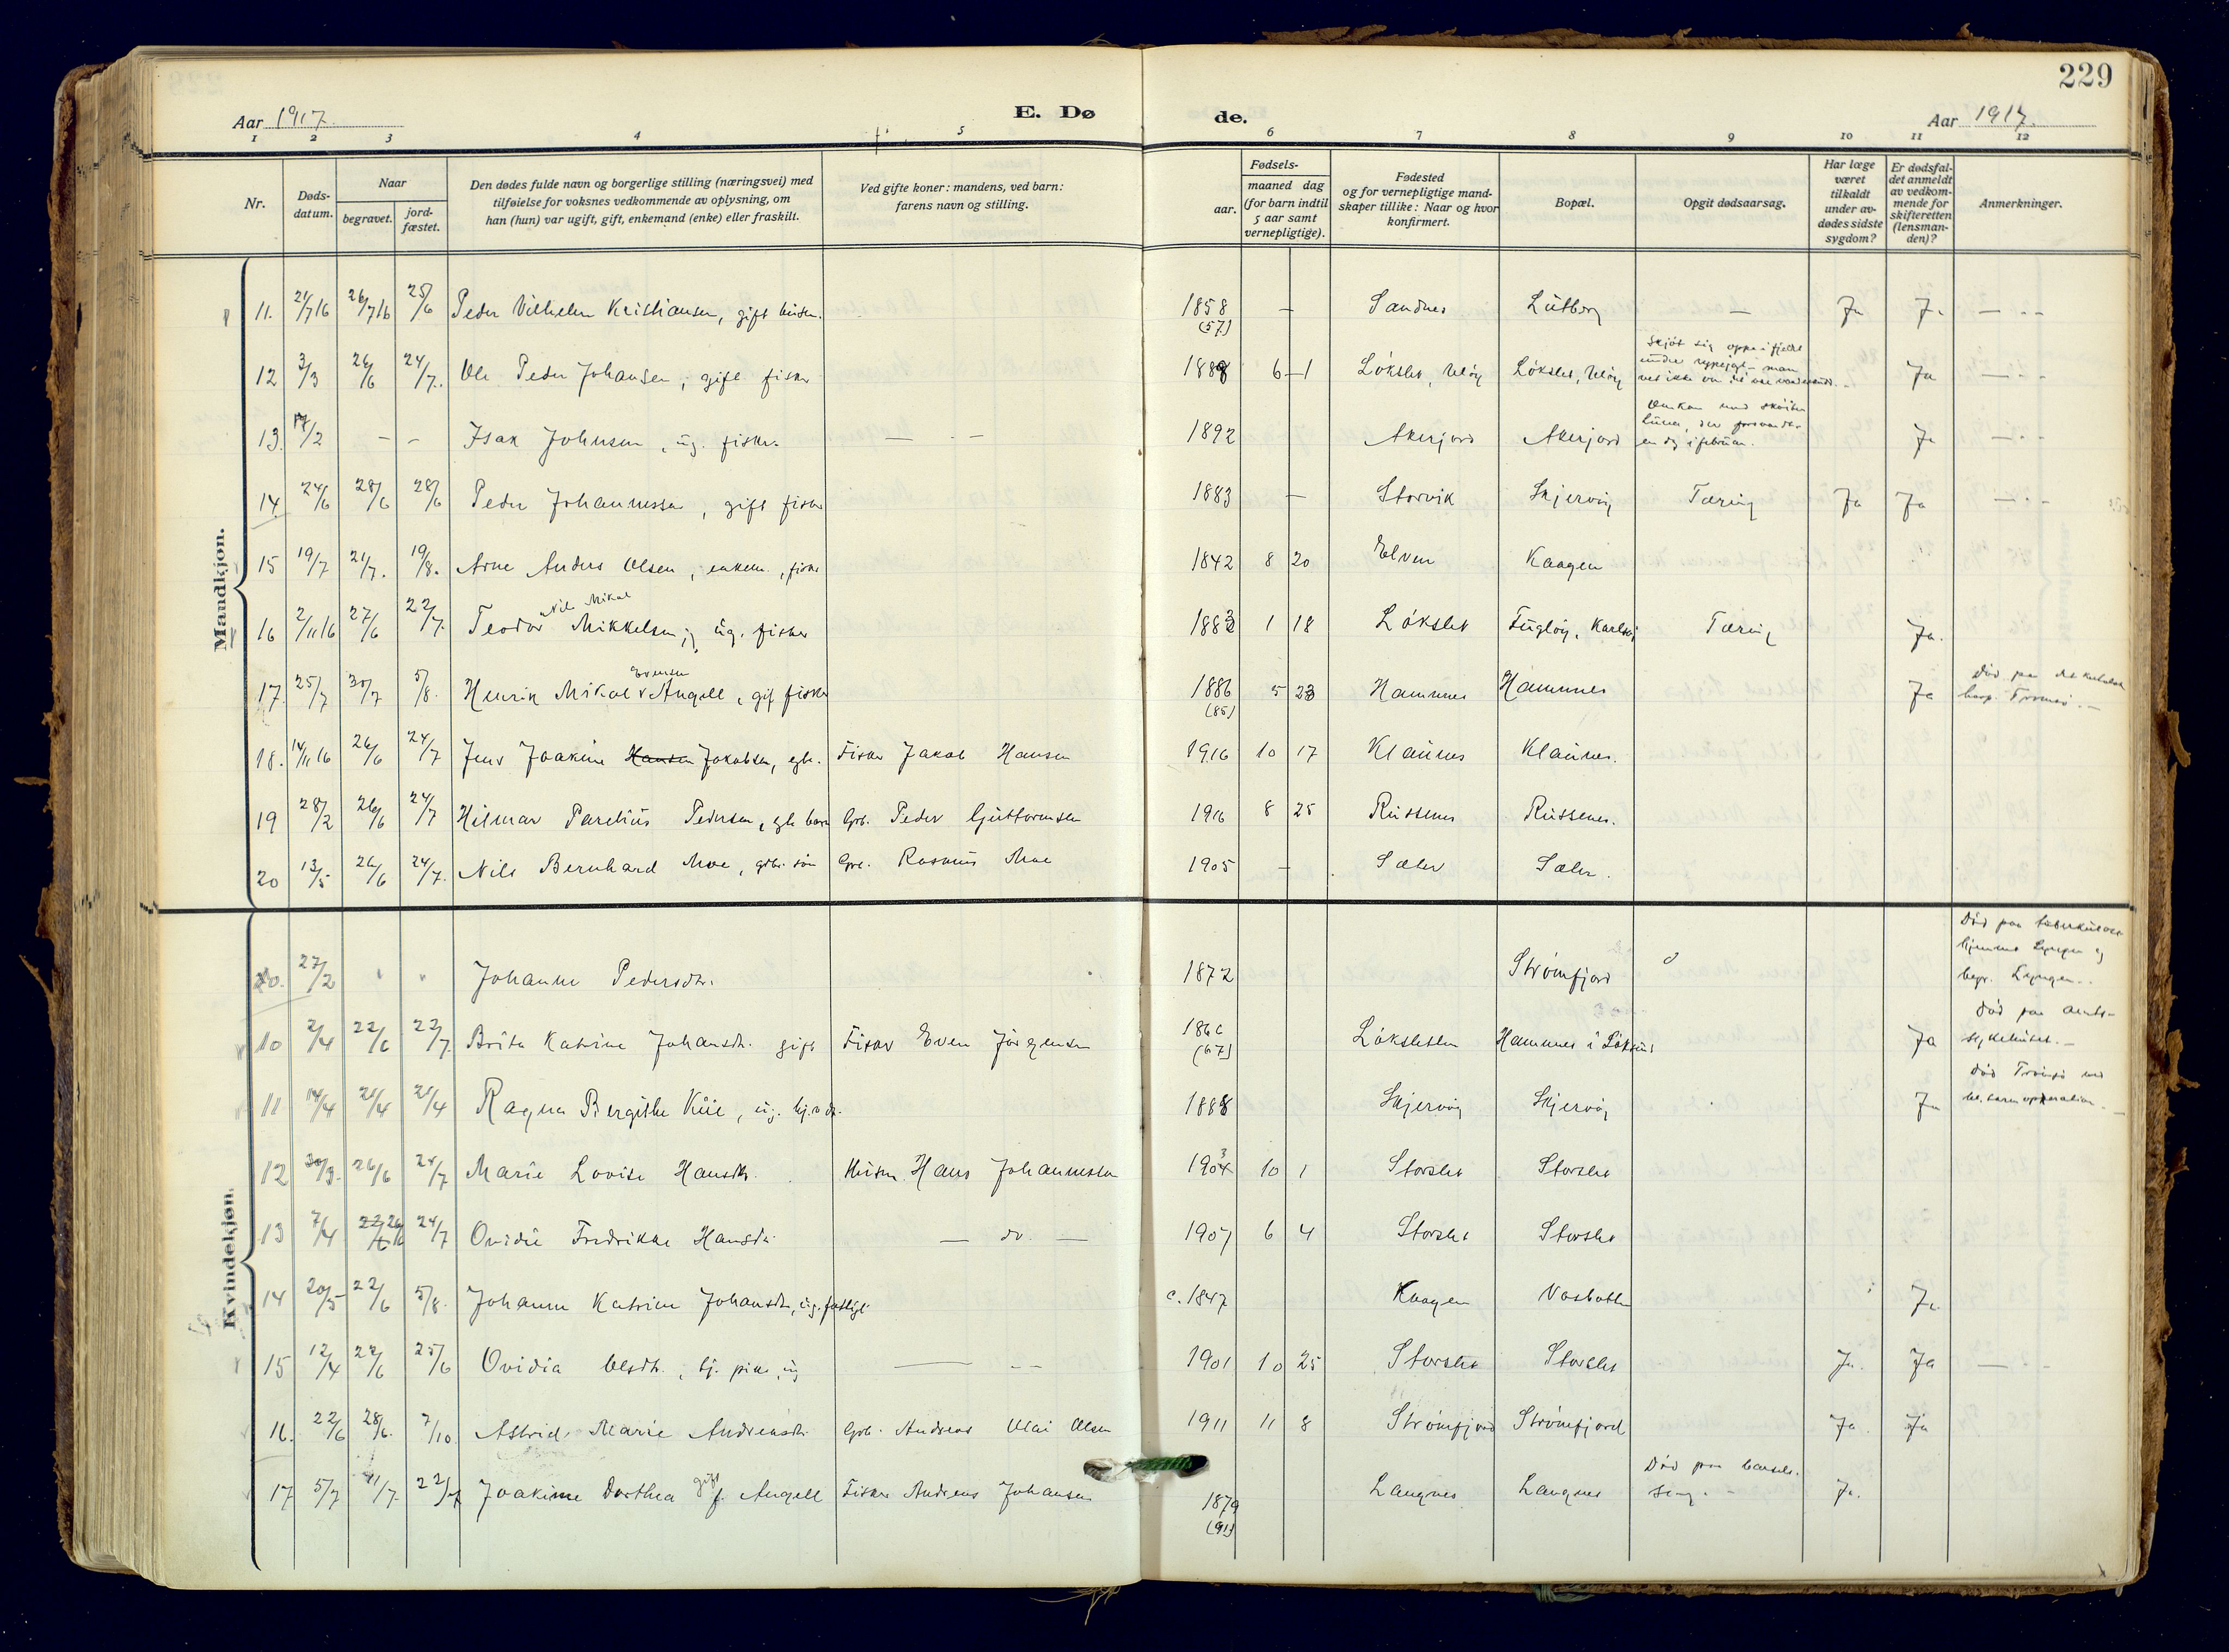 229
Aar 1917.
E. Dø
de.
Aar 1917.
1 2 3 4 5 6 7 8 9 10 11 12
Nr.
Døds-
datum.
Naar
begravet.
jord-
fæstet.
Den dødes fulde navn og borgerlige stilling (næringsvei) med
tilføielse for voksnes vedkommende av oplysning, om
han (hun) var ugift, gift, enkemand (enke) eller fraskilt.
Ved gifte koner: mandens, ved barn:
farens navn og stilling.
Fødsels-
aar.
maaned dag
(for barn indtil
5 aar samt
vernepligtige).
Fødested
og for vernepligtige mand-
skaper tillike: Naar og hvor
konfirmert.
Bopæl.
Opgit dødsaarsag.
Har læge
været
tilkaldt
under av-
dødes sidste
sygdom?
Er dødsfal-
det anmeldt
av vedkom-
mende for
skifteretten
(lensman-
den)?
Anmerkninger.
Mandkjøn.
11. 21/7 16 26/7 16 25/6 Peder Vilhelm Kristiansen, gift 1858 — Sandnes — Ja Ja
(57)
12 3/3 26/6 24/7. Ole Peder Johansen, gift fisker 1888 6 1 Løkslet, Uløy Løkslet, Uløy Skjøt sig oppe i fjeldet Ja
13. 17/2 – – Isak Johnsen, ug. fisker. — 1892 Akerjord Akerjord Omkom med skøiten Ja
14. 24/6 28/6 28/6 Peder Johannessen, gift fisker 1883 — Storvik Skjervøy Tæring Ja Ja
15 19/7 21/7. 19/8. Arne Anders Olsen, enkem., fisker 1842 8 20 Elven Kaagen
Nils Mikal
16 2/11 16 27/6 22/7. Teodor Mikkelsen, ug. fisker 1883 1 18 Løkslet Fugløy, Karlsøy Tæring Ja.
Evensen
17. 25/7 30/7 5/8. Henrik Mikal Angell, gif fisker 1886 5 23 Hamnnes Hamnnes Ja Død paa det katolske
(85) hosp. Tromsø. —
18. 14/11 16 26/6 24/7 Jens Joakim Hansen Jakobsen, egb. Fisker Jakob Hansen 1916 10 17 Klauvnes Klauvnes.
19 28/2 26/6 24/7 Hilmar Parelius Pedersen, egb barn Grb. Peder Guttormsen 1916 8 25 Rússenes Rússenes.
20 13/5 26/6 24/7. Nils Bernhard Moe, grbr. søn Grb. Rasmus Moe 1905 — Sæter Sæter.
Kvindekjøn.
27/2 Johanne Pedersdtr. 1872 Strømfjord Død paa tuberkulose-
hjemmet Lyngen og
begr. Lyngen.
10 2/4 22/6 22/7. Brita Katrine Johansdtr. gift Fisker Even Jørgensen Løksletten Hamnnes i Ja død paa amts-
(67) sykehuset. —
11 14/4 21/4 21/4 Ragna Bergithe Kiie, ug. 1888 Skjervøy Skjervøy Ja død Tromsø ved
12 30/3. 26/6 24/7 Marie Lovise Hansdtr. Husm. Hans Johannessen 1903 10 1 Storslet Storslet
13 7/4 26/6 24/7 Ovidie Fredrikke Hansdtr — do. — 1907 6 4 Storslet Storslet
14 20/5 22/6 5/8. Johanne Katrine Johansdtr, ug. fattigl. c. 1847 Kaagen Vasbotten Ja.
15 12/4 22/6 25/6 Ovidia Olsdtr., tj. pike, ug — 1901 10 25 Storslet Storslet Ja. Ja
16. 22/6 28/6. 7/10. Astrid Marie Andreasdtr. Grb. Andreas Olai Olsen 1911 11 8 Strømfjord Strømfjord Ja Ja
17 5/7 11/7. 22/7 Joakime Dorthea gift f. Angell Fisker Andreas Johansen 1879 Langnes Langnes Død paa barsel- Ja.
(91) seng. —